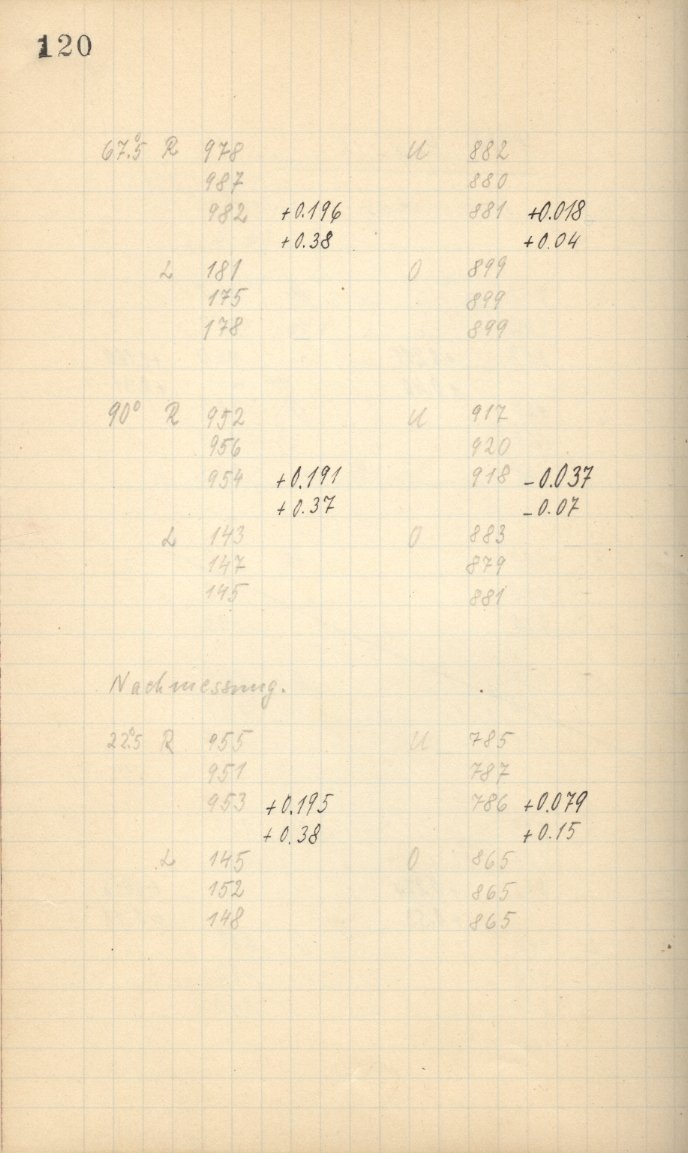 120
67.°5 R 978 U 882
987 880
982 +0.196 881 +0.018
+0.38 +0.04
L 181 O 899
175 899
178 899
90° R 952 U 917
956 920
954 +0.191 918 -0.037
+0.37 -0.07
L 143 O 883
147 879
145 881
Nachmessung.
22.°5 R 955 U 785
951 787
953 +0.195 786 +0.079
+0.38 +0.15
L 145 O 865
152 865
148 865